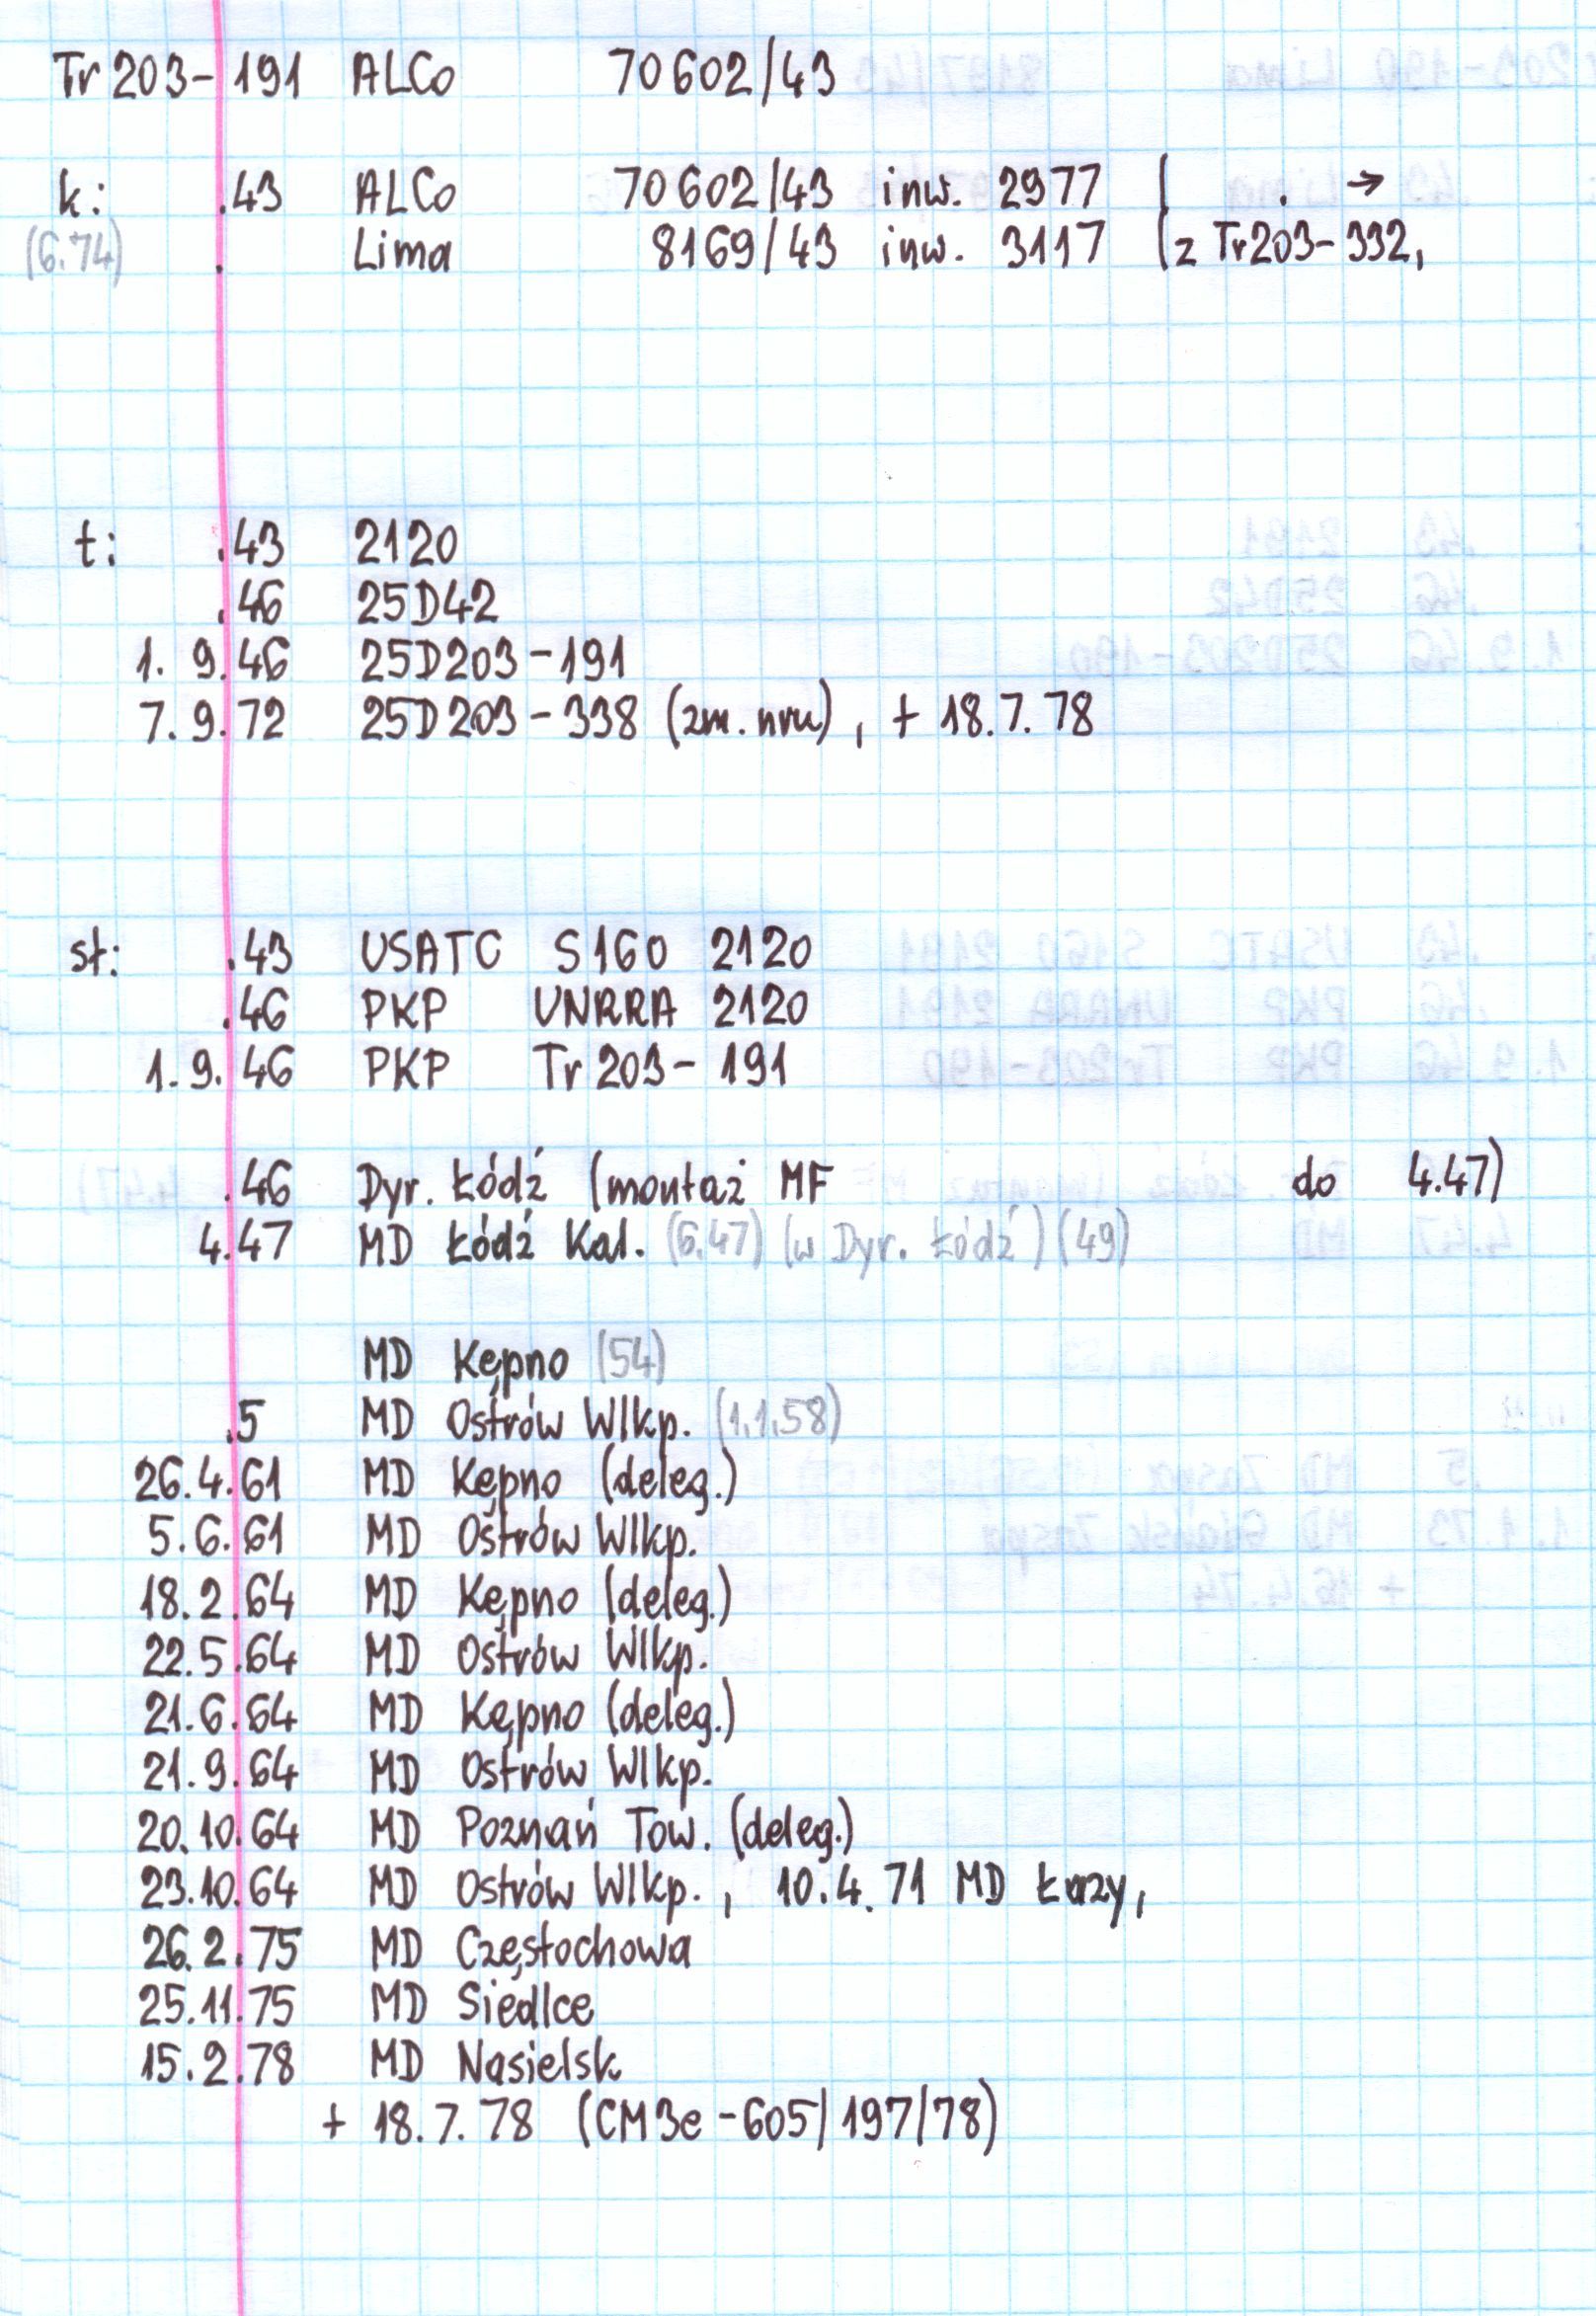 Tr 203-191 ALCo 70602/43
k: .43 ALCo 70602/43 inw. 2977 ( . →
(6.74) . Lima 8169/43 inw. 3117 (z Tr203-332,
t: .43 2120
.46 25D42
1. 9.46 25D203-191
7. 9.72 25D203-338 (zm. nru), + 18.7.78
st: .43 USATC S160 2120
.46 PKP UNRRA 2120
1. 9.46 PKP Tr 203-191
.46 Dyr. Łódź (montaż MF do 4.47)
4.47 MD Łódź Kal. (6.47) (w Dyr. Łódź) (49)
MD Kępno (54)
.5 MD Ostrów Wlkp. (1.1.58)
26.4.61 MD Kępno (deleg.)
5.6.61 MD Ostrów Wlkp.
18.2.64 MD Kępno (deleg.)
22.5.64 MD Ostrów Wlkp.
21.6.64 MD Kępno (deleg.)
21.9.64 MD Ostrów Wlkp.
20.10.64 MD Poznań Tow. (deleg.)
23.10.64 MD Ostrów Wlkp., 10.4.71 MD Łazy,
26.2.75 MD Częstochowa
25.11.75 MD Siedlce
15.2.78 MD Nasielsk
+ 18.7.78 (CM3e-605/197/78)